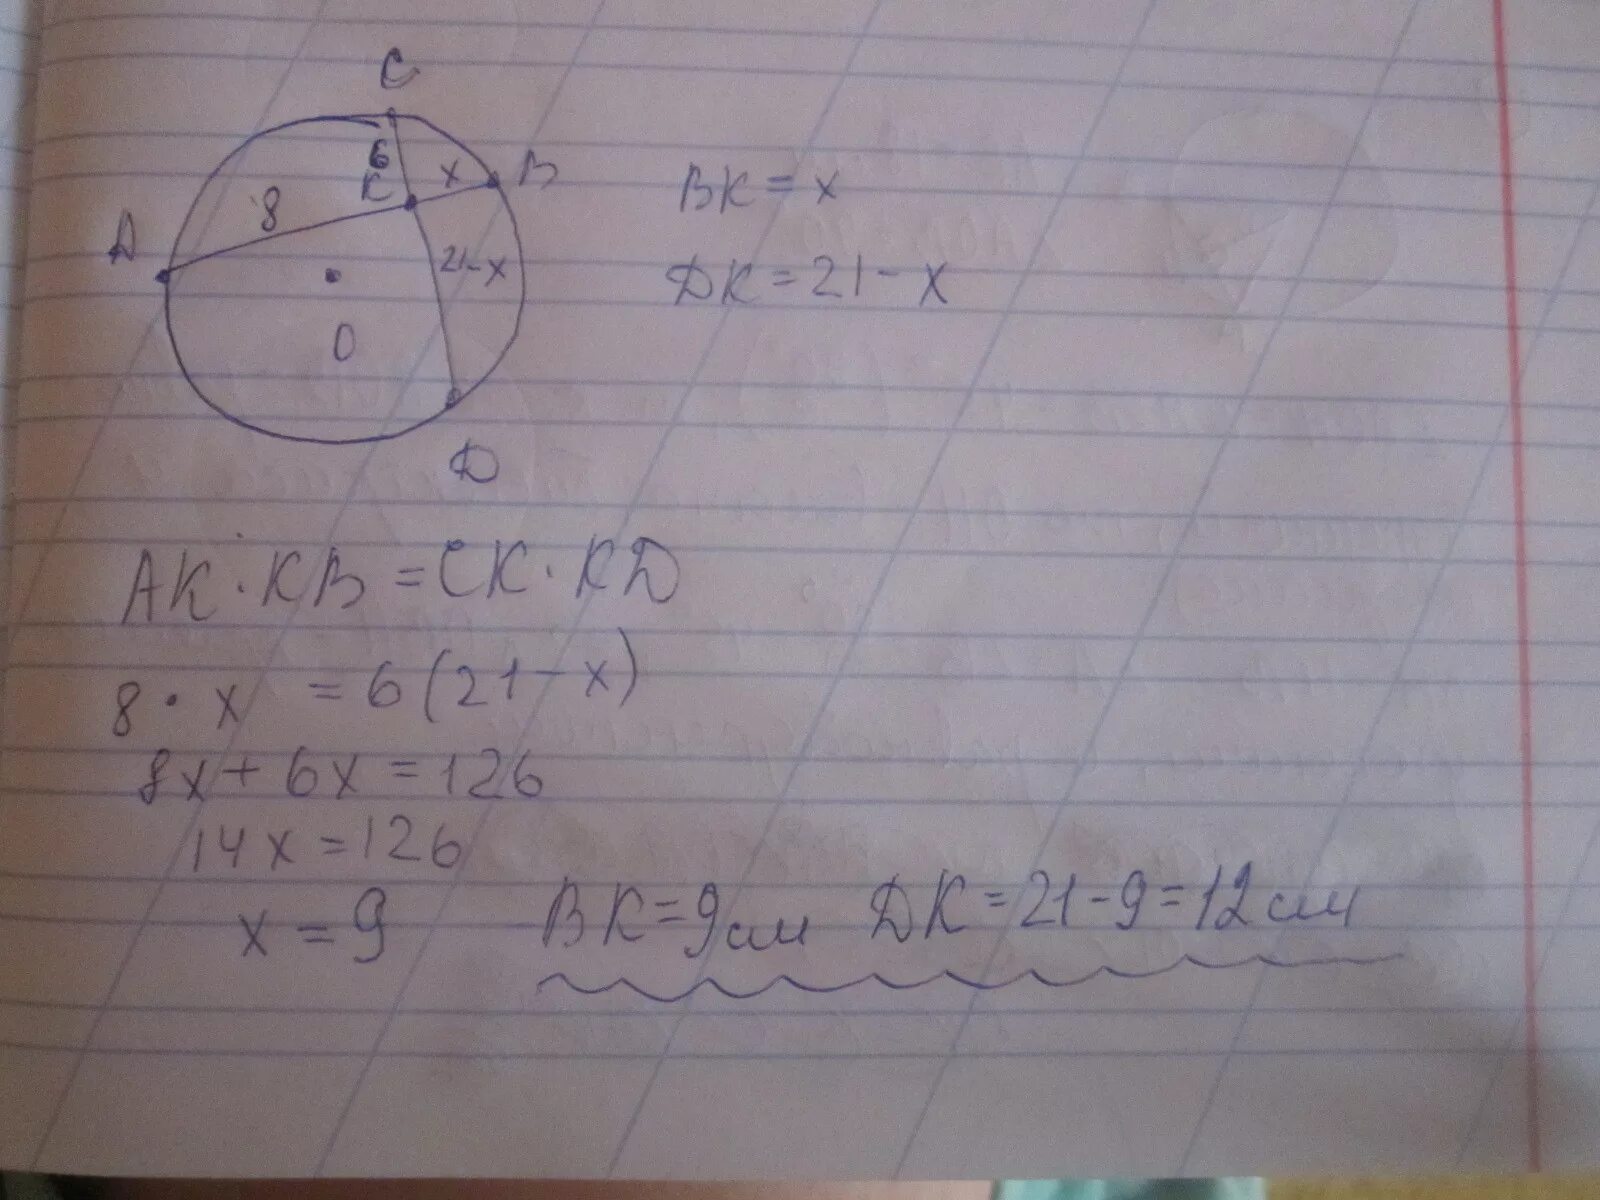 C
6
K
x
B
8
A
21-x
O
D
BK = x
DK = 21 - x
AK · KB = CK · KD
8 · x = 6(21 - x)
8x + 6x = 126
14x = 126
x = 9
BK = 9 см DK = 21 - 9 = 12 см